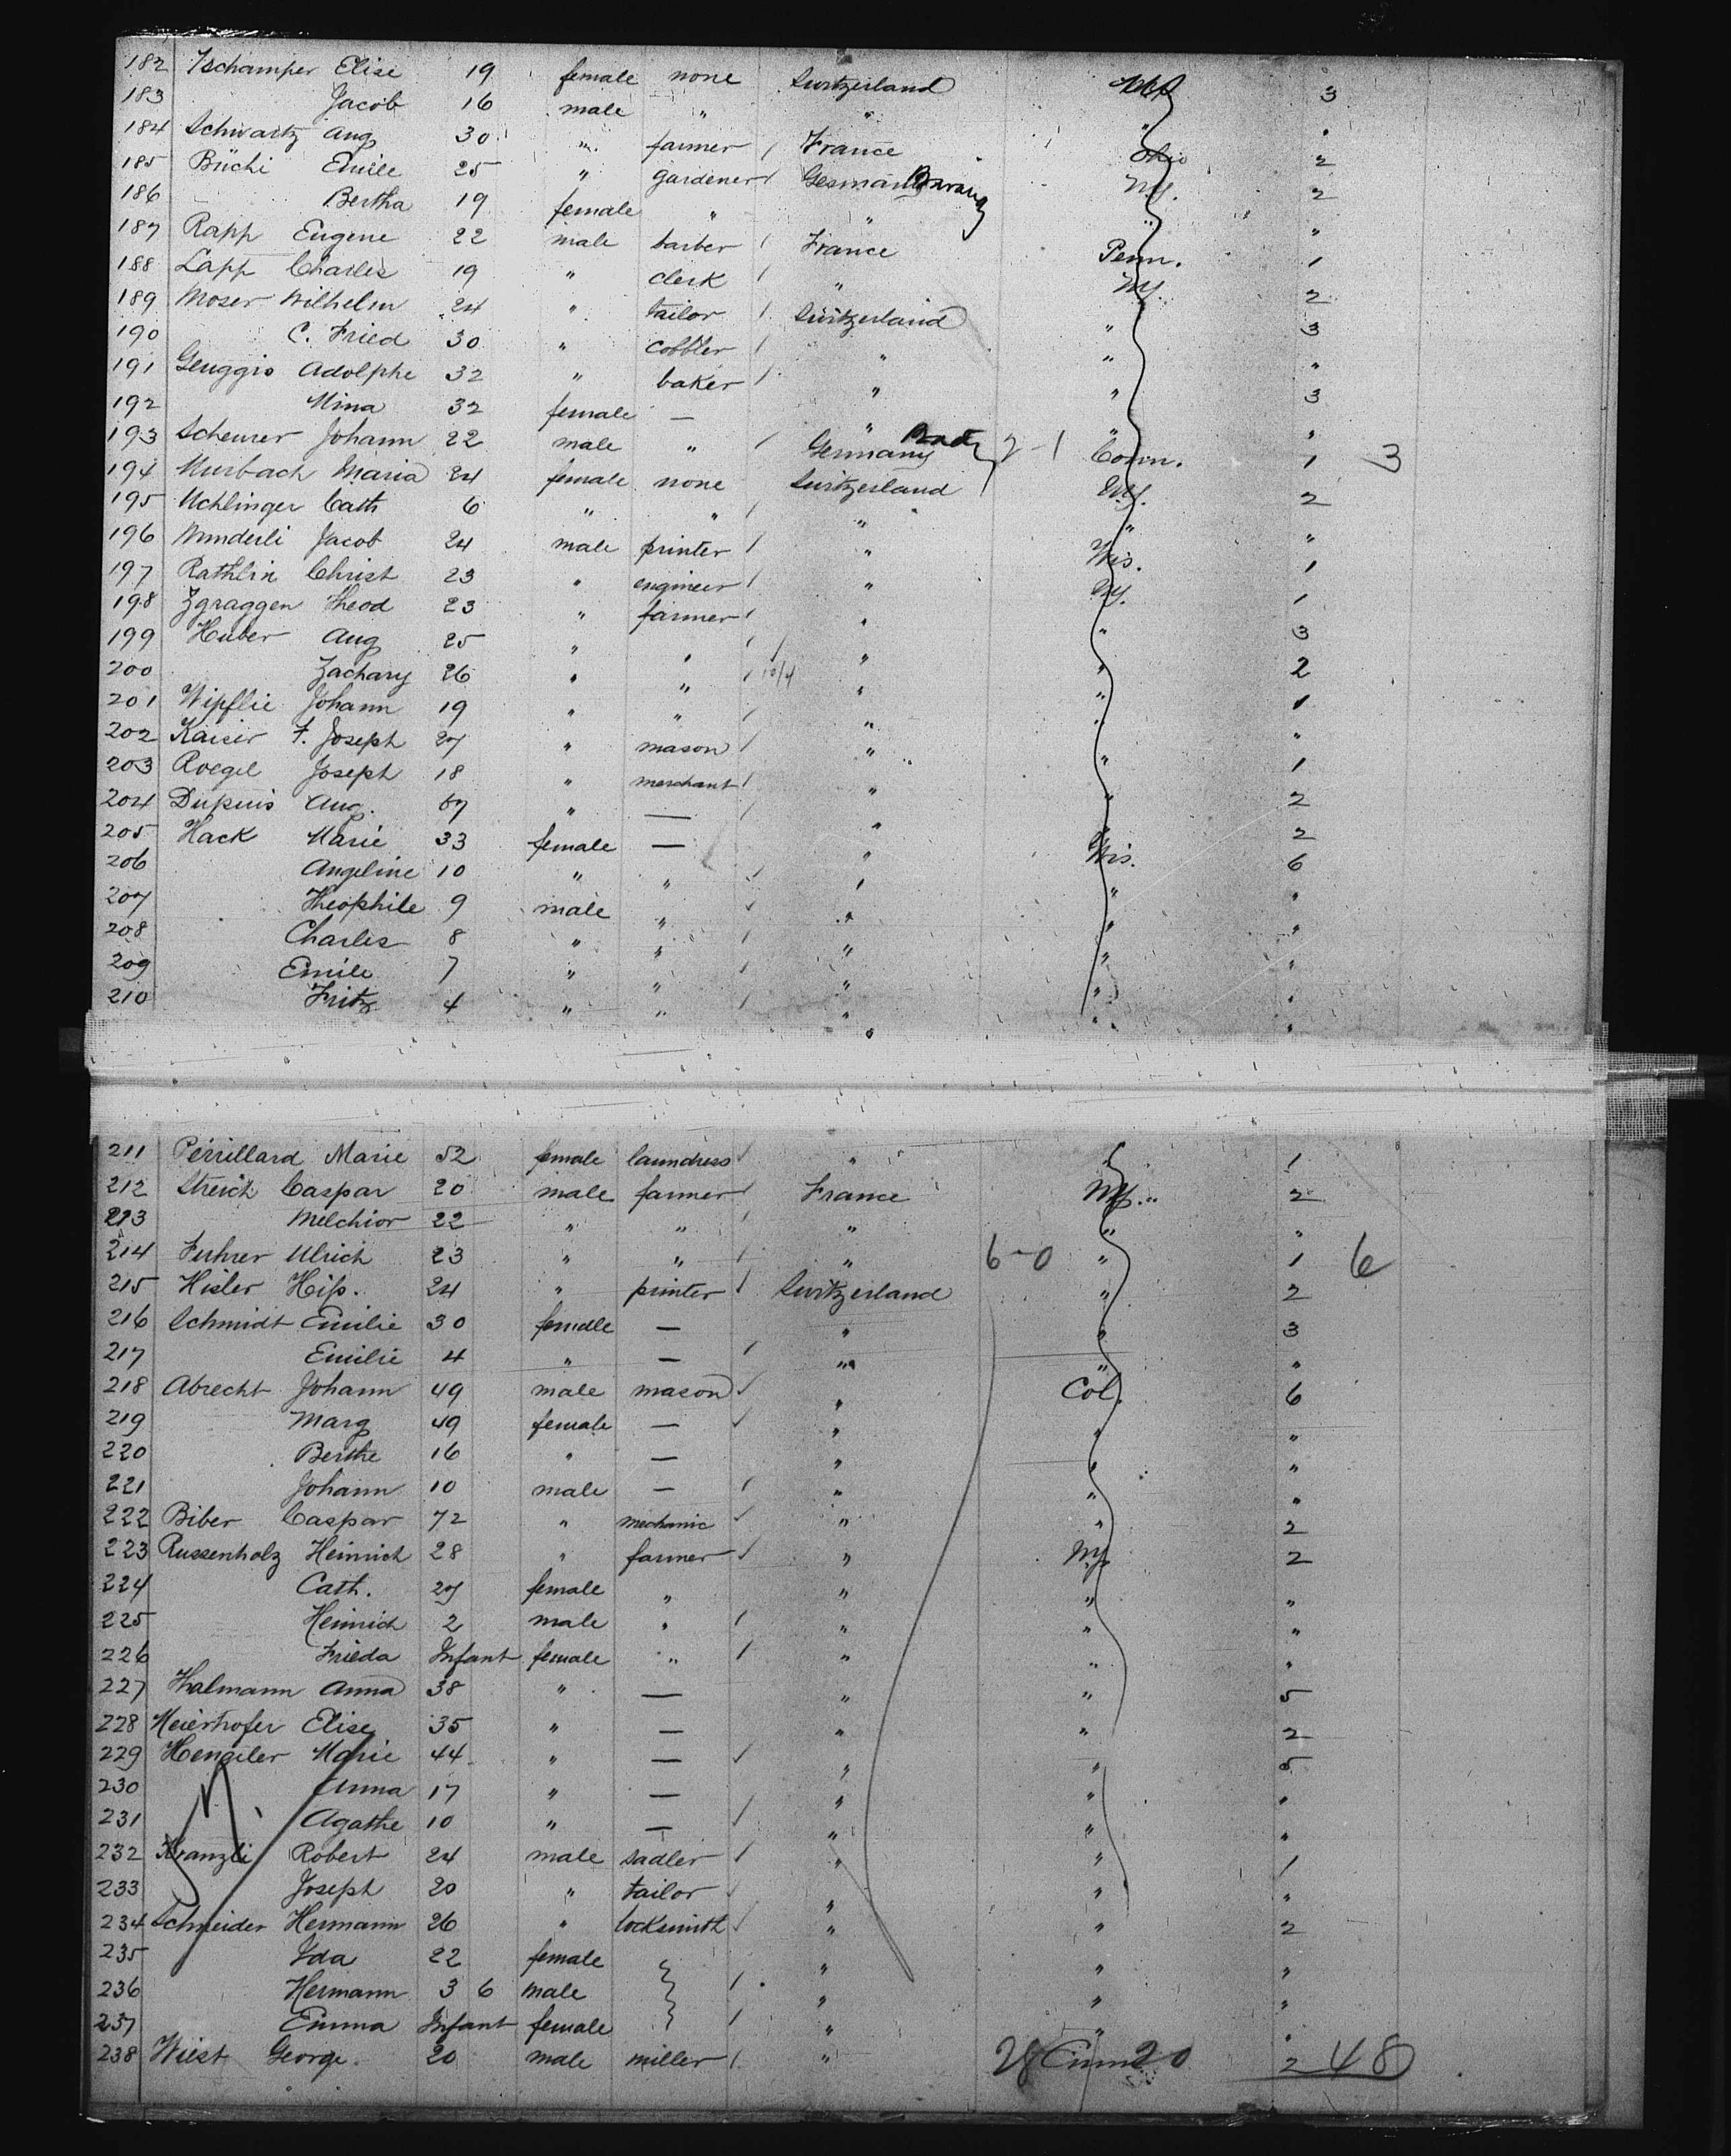 182 Tschamper Elise 19 female none Switzerland NY 3
183 Jacob 16 male " " " "
184 Schwartz Aug 30 " farmer / France Ohio 2
185 Büchi Emile 25 " gardener / Germany NY. 2
186 Bertha 19 female " " " "
187 Rapp Eugene 22 male barber / France Penn. 1
188 Lapp Charles 19 " clerk / " NY. 2
189 Moser Wilhelm 24 " tailor / Switzerland " 3
190 C. Fried 30 " cobbler / " " "
191 Genggio Adolphe 32 " baker / " " 3
192 Mina 32 female — " " "
193 Scheurer Johann 22 male " / Germany 2-1 Conn. 1 3
194 Murbach Maria 24 female none Switzerland NY. 2
195 Uehlinger Cath 6 " " / " " "
196 Wunderli Jacob 24 male printer / " Wis. 1
197 Rathlin Christ 23 " engineer / " NY. 1
198 Zgraggen Theod 23 " farmer / " " 3
199 Huber Aug 25 " " / " " 2
200 Zachary 26 " " / 10/4 " " 1
201 Wipflie Johann 19 " " / " " "
202 Kaiser F. Joseph 27 " mason / " " 1
203 Roegel Joseph 18 " merchant / " " 2
204 Dupuis Aug. 67 " — / " " 2
205 Hack Marie 33 female — " Wis. 6
206 Angeline 10 " " ✓ " " "
207 Theophile 9 male " ✓ " " "
208 Charles 8 " " / " " "
209 Emile 7 " " / " " "
210 Fritz 4 " " / " " "
211 Perrillard Marie 52 female laundress ✓ " " 1
212 Streich Caspar 20 male farmer / France NY. " 2
213 Melchior 22 " " / " " "
214 Fuhrer Ulrich 23 " " / " 6-0 " 1 6
215 Hisler Hip. 24 " printer / Switzerland " 2
216 Schmidt Emilie 30 female — " " 3
217 Emilie 4 " — / " " "
218 Abrecht Johann 49 male mason ✓ " Col. 6
219 Marg 49 female — ✓ " " "
220 Berthe 16 " — " " "
221 Johann 10 male — / " " "
222 Biber Caspar 72 " mechanic ✓ " " 2
223 Russenholz Heinrich 28 " farmer ✓ " NY 2
224 Cath. 27 female " " " "
225 Heinrich 2 male " / " " "
226 Frieda Infant female " / " " "
227 Thalmann Anna 38 " — " " 5
228 Meierhofer Elise 35 " — " " 2
229 Hengeler Marie 44 " — ✓ " " 5
230 Anna 17 " — " " "
231 Agathe 10 " — / " " "
232 Kranzli Robert 24 male sadler / " " 1
233 Joseph 20 " tailor ✓ " " "
234 Schneider Hermann 26 " locksmith ✓ " " 2
235 Ida 22 female " " "
236 Hermann 3 6 male / " " "
237 Emma Infant female / " " "
238 Wiest George. 20 male miller / " 28 20 2 48